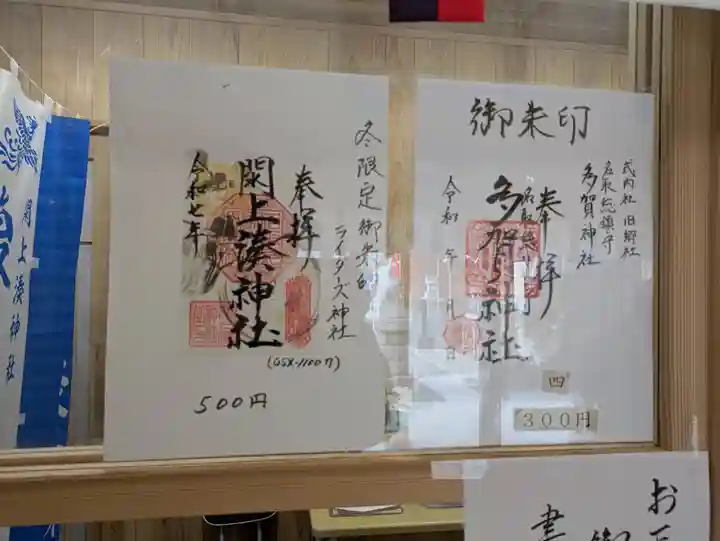 御朱印
式内社 旧郷社
名取総鎮守
多賀神社
奉拝
多賀神社
令和 年 月 日
四
300円
冬限定御朱印
ライダーズ神社
(GSX-1100刀)
奉拝
閖上湊神社
令和七年
500円
閖上湊神社
お
書
御